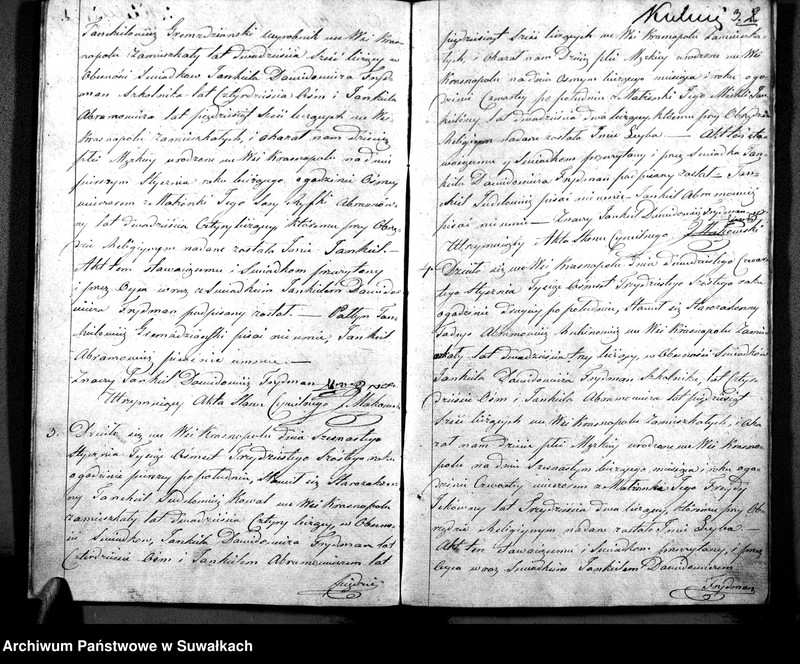 Jankielowicz Gromadzienski Wyrobnik we Wsi Kras-
nopolu Zamieszkały lat dwadzieścia Sześć liczący w
Obecności Swiadków Jankiela Dawidowicza Fryd
man Szkolnika lat Czterdzieści Ośm i Jankiela
Abramowicza lat pięćdziesiąt Sześć liczących we Wsi
Krasnopolu zamieszkałych, i okazał nam dziecię
płci Męzkiej urodzone we Wsi Krasnopolu na dniu
pierwszym Stycznia roku bieżącego o godzinie Ósmej
wieczorem z Małżonki Jego Abramow
ny lat dwadzieścia Cztery liczącej któremu przy Obrzę
dzie Religijnym nadane zostało Imie Jankiel. —
Akt ten stawaiącemu i Swiadkom przeczytany
i przez Oyca wraz z Swiadkiem Jankielem Dawido
wiczem Frydman podpisany został. — Jan
kielowicz Gromadzieński pisać nie umie Jankiel
Abramowicz pisać nie umie. —
Znaczy Jankiel Dawidowicz Frydman
Utrzymujący Akta Stanu Cywilnego J. Makowski
3. Działo się we Wsi Krasnopolu dnia Szesnastego
Stycznia Tysiąc Ośmset Trzydziestego Szóstego roku
o godzinie pierwszy po południu, Stawił się Starozakon
ny Jankiel Judelowicz Kowal we Wsi Krasnopolu
zamieszkały lat dwadzieścia Cztery liczący, w Obecno
ści Swiadków, Jankiela Dawidowicza Frydman lat
Czterdzieści Ośm i Jankielem Abramowiczem lat
pięćdzie
Kukuć 3. 8
pięćdziesiąt Sześć liczących we Wsi Krasnopolu Zamieszka
łych, i okazał nam Dziecię płci Męzkiej urodzone we Wsi
Krasnopolu na dniu Osmym bieżącego miesiąca i roku o go
dzinie Czwarty po południu z Małżonki Jego Jan
kielowny lat dwadzieścia dwa liczący, któremu przy Obrzędzie
Religijnym nadane zostało Imie Leyba. — Akt ten sta
waiącemu y Swiadkom przeczytany i przez Swiadka Jan
kiela Dawidowicza Frydman podpisany został — Jan
kiel Judelowicz pisać nie umie Jankiel Abramowicz
pisać nie umie. — Znaczy Jankiel Dawidowicz Frydman
Utrzymujący Akta Stanu Cywilnego J. Makowski
4. Działo się we Wsi Krasnopolu dnia dwudziestego Czwar
tego Stycznia Tysiąc Ośmset Trzydziestego Szóstego roku
o godzinie drugiey po południu, Stawił się Starozakonny
Abramowicz we Wsi Krasnopolu Zamiesz
kały lat dwadzieścia trzy liczący, w Obecności Swiadków
Jankiela Dawidowicza Frydman Szkolnika, lat Czter
dzieści Ośm i Jankiela Abramowicza lat pięćdziesiąt
Sześć liczących we Wsi Krasnopolu Zamieszkałych, i Oka
zał nam Dziecię płci Męzkiej urodzone we Wsi Krasno
polu na dniu Szesnastym bieżącego miesiąca i roku o go
dzinie Czwarty wieczorem z Małżonki Jego Freydy
lat Trzydzieści dwa liczący, któremu przy Ob
rzędzie Religijnym nadane zostało Imie Leyba. —
Akt ten stawaiącemu i Swiadkom przeczytany, i przez
Oyca wraz Swiadkiem Jankielem Dawidowiczem
Frydman
Archiwum Państwowe w Suwałkach